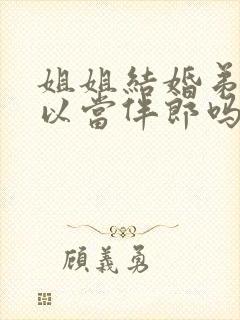 姐姐結婚弟
以當伴郎嗎
顧義勇